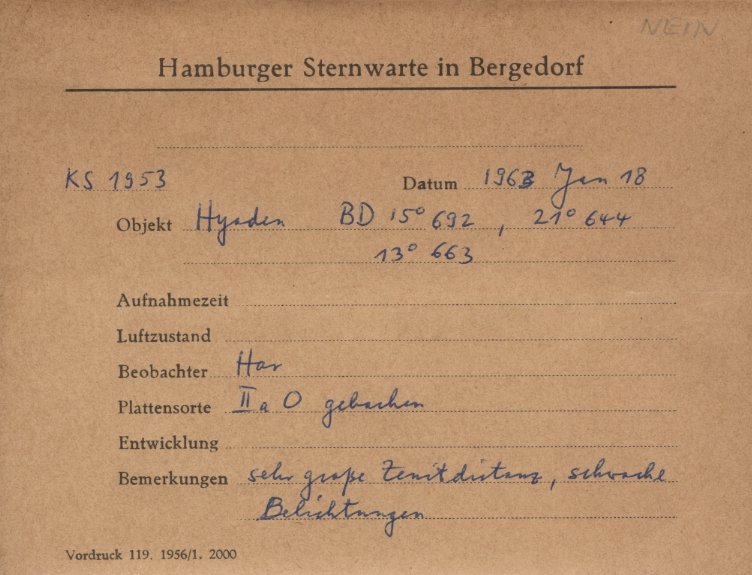 NEIN
Hamburger Sternwarte in Bergedorf
KS 1953 Datum 1963 Jan 18
Objekt Hyaden BD 15° 692, 21° 644
13° 663
Aufnahmezeit
Luftzustand
Beobachter Har
Plattensorte II a O gebacken
Entwicklung
Bemerkungen sehr große Zenitdistanz, schwache
Belichtungen
Vordruck 119. 1956/1. 2000